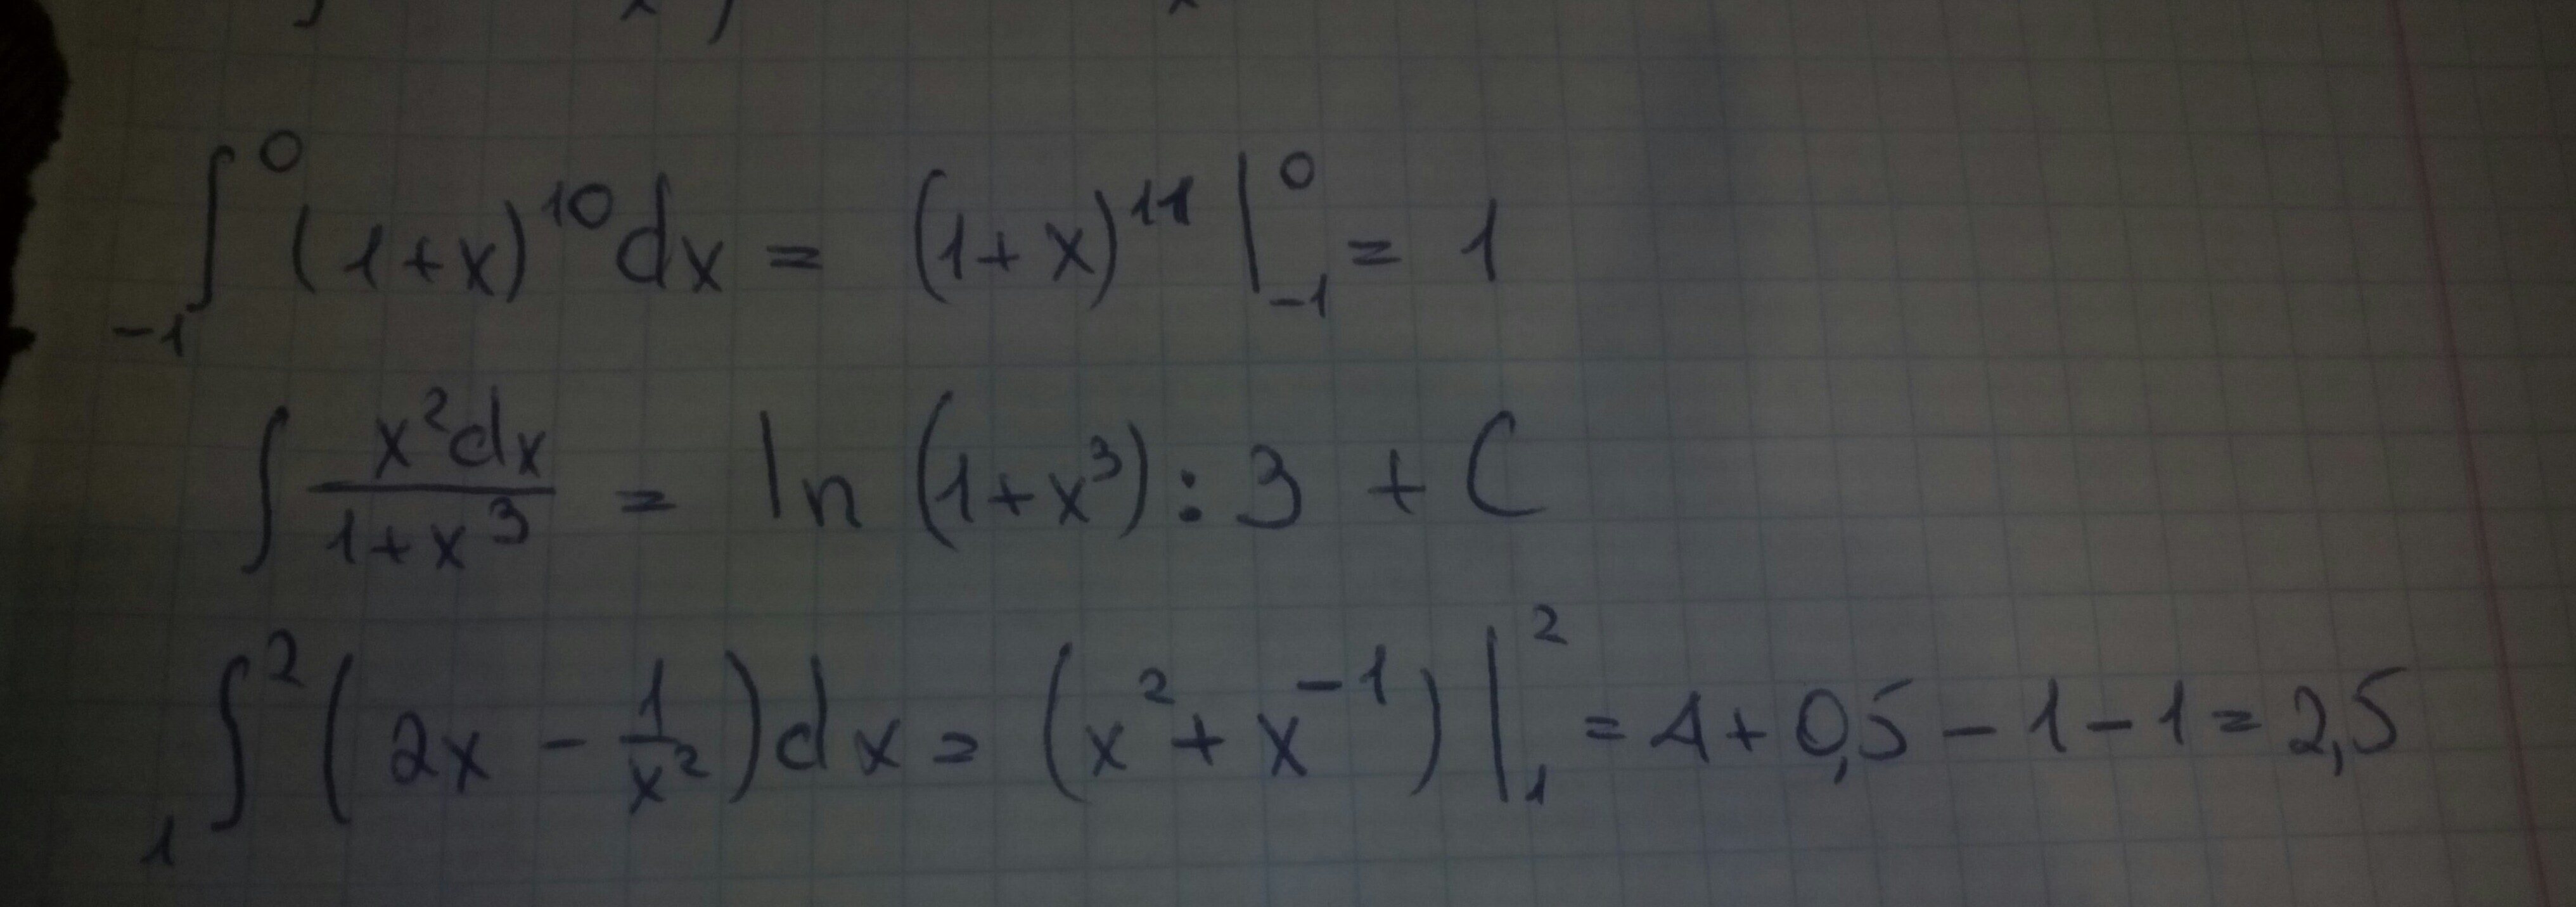 ∫₋₁⁰ (1+x)¹⁰dx = (1+x)¹¹ |₋₁⁰ = 1
∫ x²dx/(1+x³) = ln (1+x³) : 3 + C
∫₁² (2x - 1/x²)dx = (x² + x⁻¹) |₁² = 4 + 0,5 - 1 - 1 = 2,5